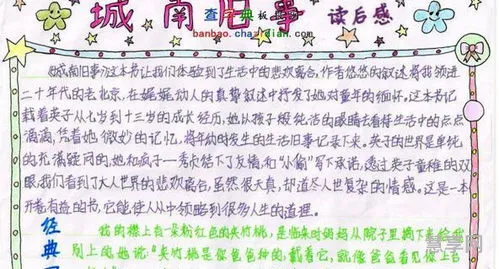 城南旧事 读后感
查字典 板报网
banbao.chazidian.com
《城南旧事》这本书让我们体验到了生活中的悲欢离合,作者悠悠的叙述将我领进
二十年代的老北京,在娓娓动人的真挚叙述中抒发了她对童年的缅怀。这本书记
载着英子从七岁到十三岁的成长经历,她从孩子般纯洁的眼睛去看待生活中的点点
滴滴,凭着她微妙的记忆,将年幼时发生的生活旧事记录下来。英子的世界是单纯
的充满疑问的,她和疯子—秀贞结下了友情,和"小偷"写下承诺,透过英子童稚的双
眼,我们看到了大人世界的悲欢离合,虽然很天真,却道尽人世复杂的情感。这是一本
开卷有益的书,它能使人从中领略到很多人生的道理。
经典
我的襟上有一朵粉红色的夹竹桃,是临来时妈妈从院子里摘下来给我
别上的,她说:"夹竹桃是你爸爸种的,戴着它,就像爸爸看见你上台
慧学网